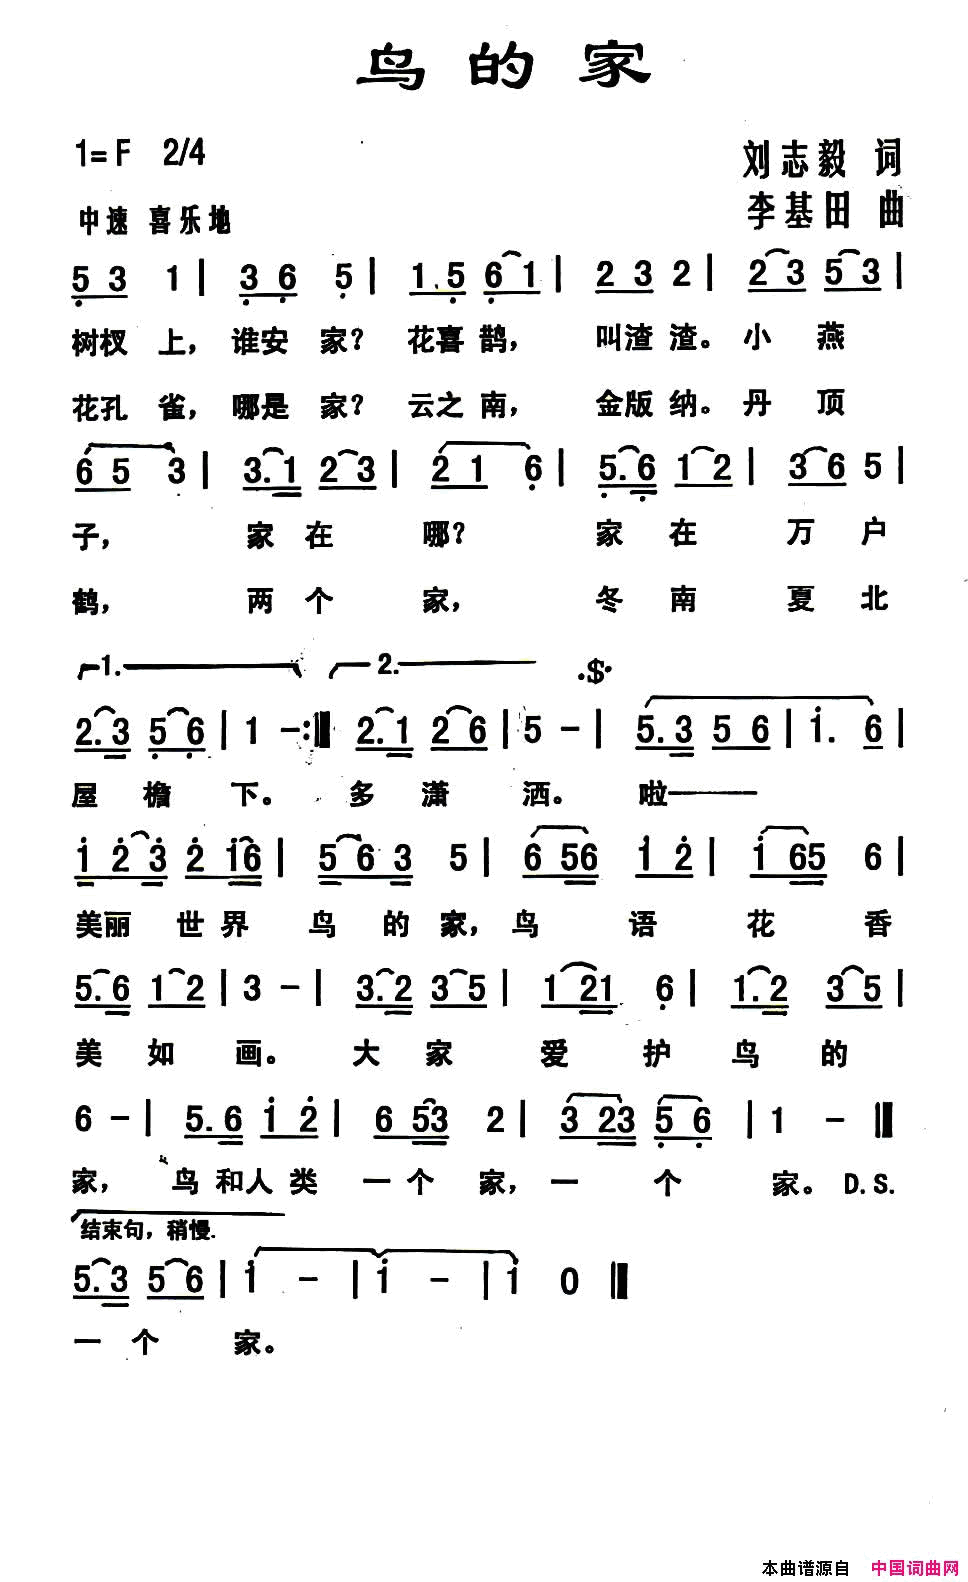 鸟的家
1=F 2/4
刘志毅 词
中速 喜乐地
李基田 曲
5 3 1 | 3 6 5 | 1. 5 6 1 | 2 3 2 | 2 3 5 3 |
树杈 上，谁安 家？花喜 鹊， 叫渣 渣。小 燕
花孔 雀，哪是 家？云之 南， 金版 纳。丹 顶
6 5 3 | 3. 1 2 3 | 2 1 6 | 5. 6 1 2 | 3 6 5 |
子， 家 在 哪？ 家 在 万 户
鹤， 两 个 家， 冬 南 夏 北
1. 2. 𝄋
2. 3 5 6 | 1 - :‖ 2. 1 2 6 | 5 - | 5. 3 5 6 | 1. 6 |
屋 檐 下。 多 潇 洒。 啦——
1 2 3 2 16 | 5 6 3 5 | 6 56 1 2 | 1 65 6 |
美丽 世 界 鸟 的 家，鸟 语 花 香
5. 6 1 2 | 3 - | 3. 2 3 5 | 1 21 6 | 1. 2 3 5 |
美 如 画。 大 家 爱 护 鸟 的
6 - | 5. 6 1 2 | 6 53 2 | 3 23 5 6 | 1 - ‖
家， 鸟 和人 类 一 个 家，一 个 家。D.S.
结束句，稍慢.
5. 3 5 6 | 1 - | 1 - | 1 0 ‖
一 个 家。
本曲谱源自 中国词曲网